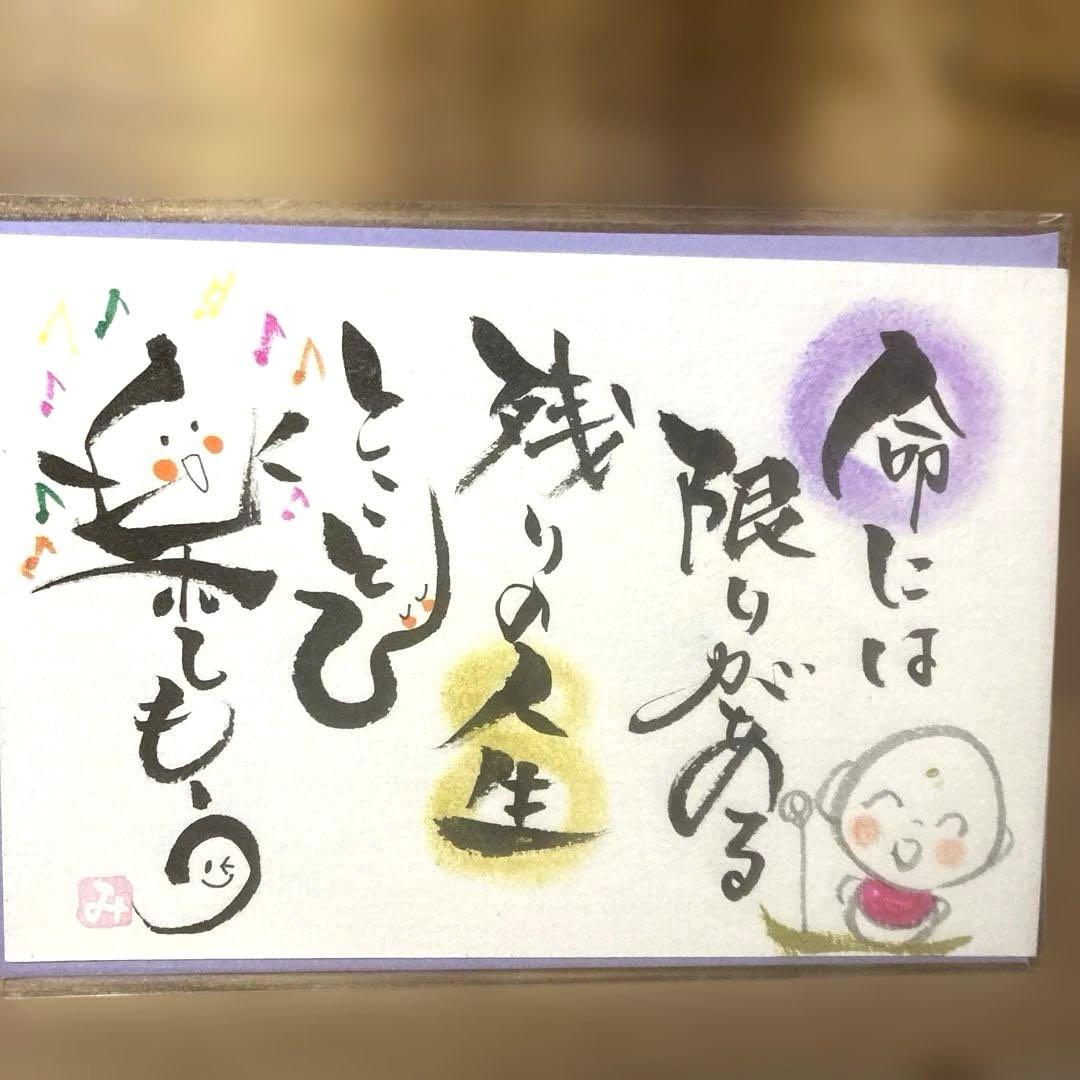 命には
限りがある
残りの人生
とことん
楽しもう
み